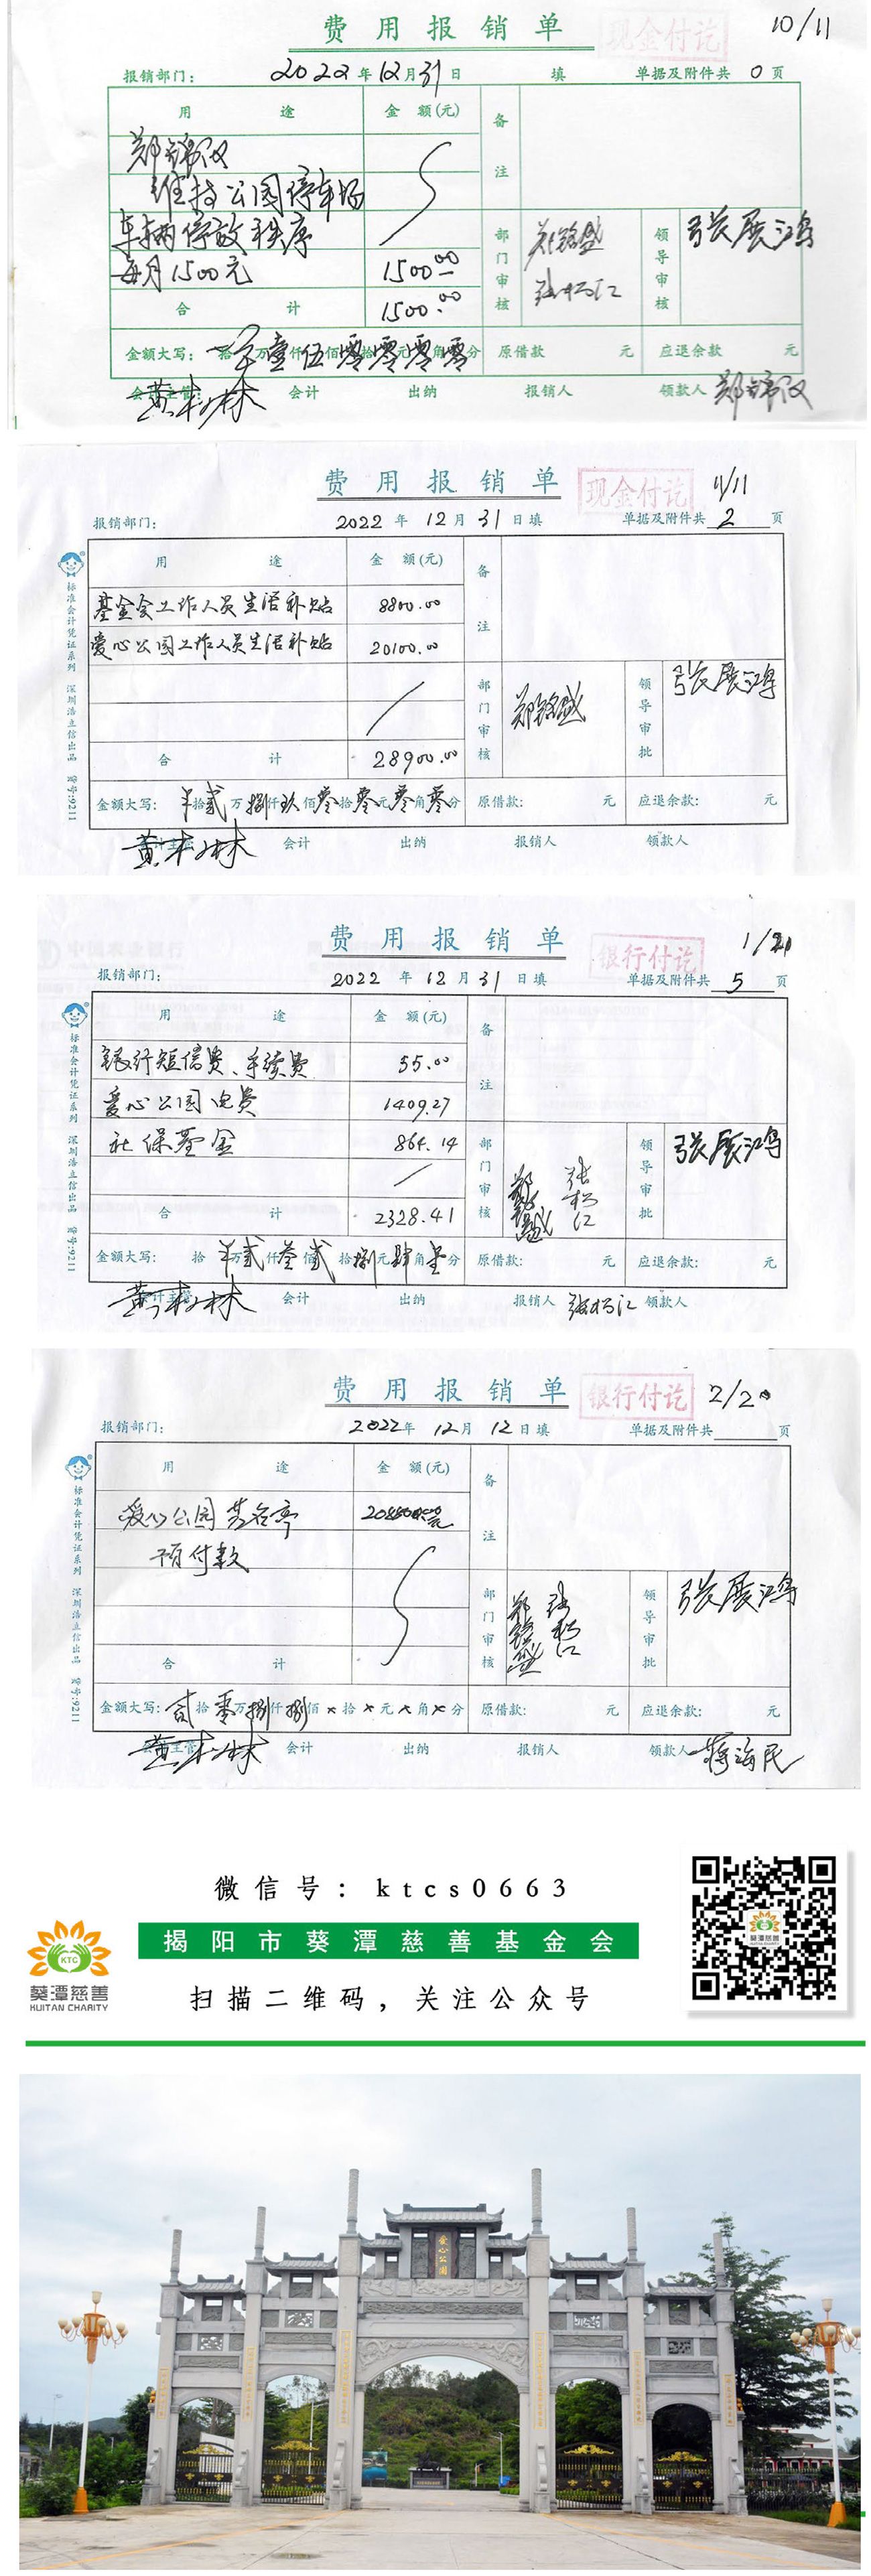 费用报销单
现金付讫
10/11
报销部门：
2022年12月31日
填
单据及附件共 0 页
用途
金额(元)
备注
郑锦汉
维持公园停车场
车辆停放秩序
每月1500元
1500.00
合计
1500.00
部门审核
郑铭盛
张松江
领导审核
张展鸿
金额大写：
拾万壹仟伍佰零拾零元零角零分
原借款 元
应退余款 元
会计主管：
黄木林
会计
出纳
报销人
领款人
郑锦汉
费用报销单
现金付讫
11/11
报销部门：
2022年12月31日填
单据及附件共 2 页
标准会计凭证系列 深圳浩立信出品 货号:9211
用途
金额(元)
备注
基金会工作人员生活补贴
8800.00
爱心公园工作人员生活补贴
20100.00
合计
28900.00
部门审核
郑铭盛
领导审批
张展鸿
金额大写：
拾贰万捌仟玖佰零拾零元零角零分
原借款： 元
应退余款： 元
会计主管
黄木林
会计
出纳
报销人
领款人
费用报销单
银行付讫
报销部门：
2022年12月31日填
单据及附件共 5 页
标准会计凭证系列 深圳浩立信出品 货号:9211
用途
金额(元)
备注
银行短信费、手续费
55.00
爱心公园电费
1409.27
社保基金
864.14
合计
2328.41
部门审核
郑铭盛
张松江
领导审批
张展鸿
金额大写：
拾万贰仟叁佰贰拾捌元肆角壹分
原借款： 元
应退余款： 元
会计主管
黄木林
会计
出纳
报销人 张松江
领款人
费用报销单
银行付讫
2/20
报销部门：
2022年12月12日填
单据及附件共 页
标准会计凭证系列 深圳浩立信出品 货号:9211
用途
金额(元)
备注
爱心公园芳名亭
预付款
合计
部门审核
郑铭盛
张松江
领导审批
张展鸿
金额大写：
贰拾零万捌仟捌佰×拾×元×角×分
原借款： 元
应退余款： 元
会计主管
黄木林
会计
出纳
报销人
领款人 蒋海民
微信号：ktcs0663
揭阳市葵潭慈善基金会
扫描二维码，关注公众号
KTC
葵潭慈善
KUITAN CHARITY
葵潭慈善
爱心公园